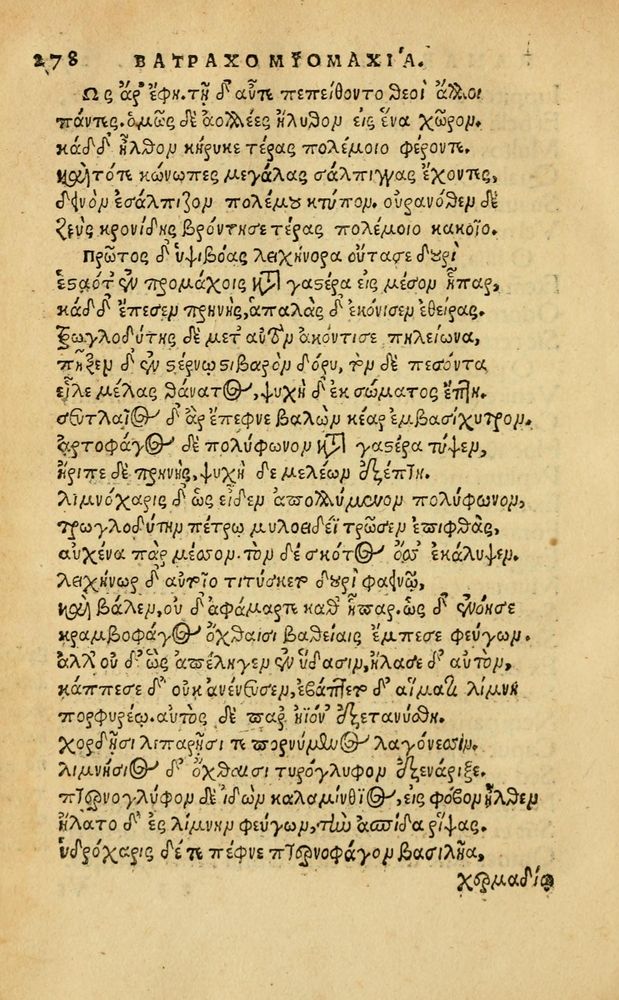 278 ΒΑΤΡΑΧΟΜΥΟΜΑΧΙΑ.
Ως ἄρ' ἔφη. τῇ δ' αὖτε πεπείθοντο θεοὶ ἄλλοι
πάντες. ὁμῶς δὲ ἀολλέες ἤλυθον εἰς ἕνα χῶρον.
κάδ δ' ἦλθον κήρυκε τέρας πολέμοιο φέροντε.
καὶ τότε κώνωπες μεγάλας σάλπιγγας ἔχοντες,
δεινὸν ἐσάλπιζον πολέμου κτύπον. οὐρανόθεν δὲ
ζεὺς κρονίδης βρόντησε τέρας πολέμοιο κακοῖο.
Πρῶτος δ' ὑψιβόας λειχήνορα οὔτασε δουρὶ
ἑσταότ' ἐν προμάχοις κατὰ γαστέρα εἰς μέσον ἧπαρ,
κάδ δ' ἔπεσεν πρηνὴς, ἁπαλὰς δ' ἐκόνισεν ἐθείρας.
Τρωγλοδύτης δὲ μετ' αὐτὸν ἀκόντισε πηλείωνα,
πῆξεν δ' ἐν στέρνῳ στιβαρὸν δόρυ, τὸν δὲ πεσόντα
εἷλε μέλας θάνατος, ψυχὴ δ' ἐκ σώματος ἔπτη.
σευτλαῖος δ' ἂρ ἔπεφνε βαλὼν κέαρ ἐμβασίχυτρον.
ἀρτοφάγος δὲ πολύφωνον κατὰ γαστέρα τύψεν,
ἤριπε δὲ πρηνὴς, ψυχὴ δὲ μελέων ἐξέπτη.
λιμνόχαρις δ' ὡς εἶδεν ἀπολλύμενον πολύφωνον,
τρωγλοδύτην πέτρῳ μυλοειδέϊ τρῶσεν ἐπιφθὰς,
αὐχένα παρ μέσσον. τὸν δὲ σκότος ὄσσ' ἐκάλυψεν.
λειχήνωρ δ' αὐτοῖο τιτύσκετο δουρὶ φαεινῷ,
καὶ βάλεν, οὐδ' ἀφάμαρτε καθ' ἧπαρ. ὡς δ' ἐνόησε
κραμβοφάγος ὄχθαισι βαθείαις ἔμπεσε φεύγων.
ἀλλ' οὐδ' ὣς ἀπέληγεν ἐν ὕδασιν, ἤλασε δ' αὐτὸν,
κάππεσε δ' οὐκ ἀνένευσεν, ἐβάπτετο δ' αἵματι λίμνη
πορφυρέῳ. αὐτὸς δὲ παρ' ἠϊόν' ἐξετανύσθη.
χορδῇσι λιπαρῇσί τε πορνύμενος λαγόνεσσιν.
λιμνήσιος δ' ὄχθαισι τυρόγλυφον ἐξενάριξε.
πτερνογλύφον δὲ ἰδὼν καλαμίνθιος, εἰς φόβον ἦλθεν
ἤλατο δ' ἐς λίμνην φεύγων, τὴν ἀσπίδα ῥίψας.
ὑδρόχαρις δέ τε πέφνε πτερνοφάγον βασιλῆα,
χερμαδίῳ